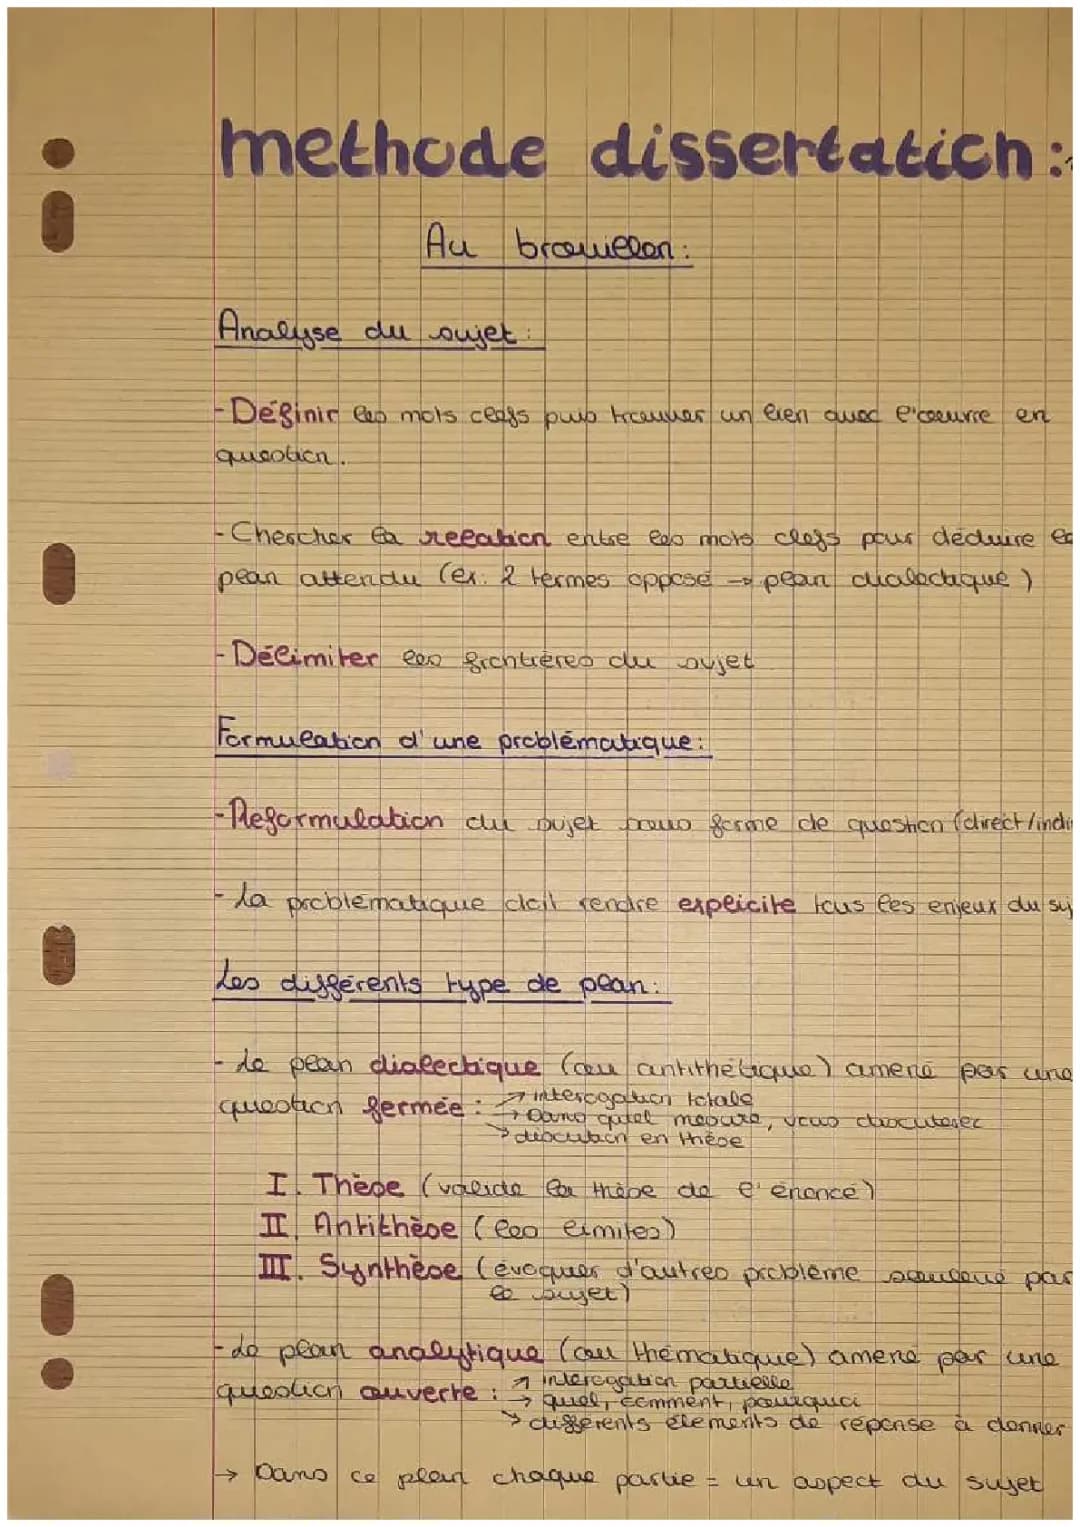 methode dissertation :
Au brouillon :
Analyse du sujet :
- Définir les mots clefs puis trouver un lien avec l'œuvre en
question.
- Chercher la relation entre les mots clefs pour déduire le
plan attendu (ex. 2 termes opposé → plan dialectique)
- Délimiter les frontières du sujet
Formulation d'une problématique :
- Reformulation du sujet sous forme de question (direct/indi
- La problématique doit rendre explicite tous les enjeux du suj
Les différents type de plan :
- Le plan dialectique (ou antithétique) amené par une
question fermée : → interogation totale
→ Dans quel mesure, vous discuterez
→ discution en thèse
I. Thèse (valide la thèse de l'énoncé)
II. Antithèse (les limites)
III. Synthèse (évoquer d'autres problème soulevé par
le sujet)
- Le plan analytique (ou thématique) amené par une
question ouverte : → interogation partielle
→ quel, comment, pourquoi
→ différents élements de réponse à donner
→ Dans ce plan chaque partie = un aspect du sujet